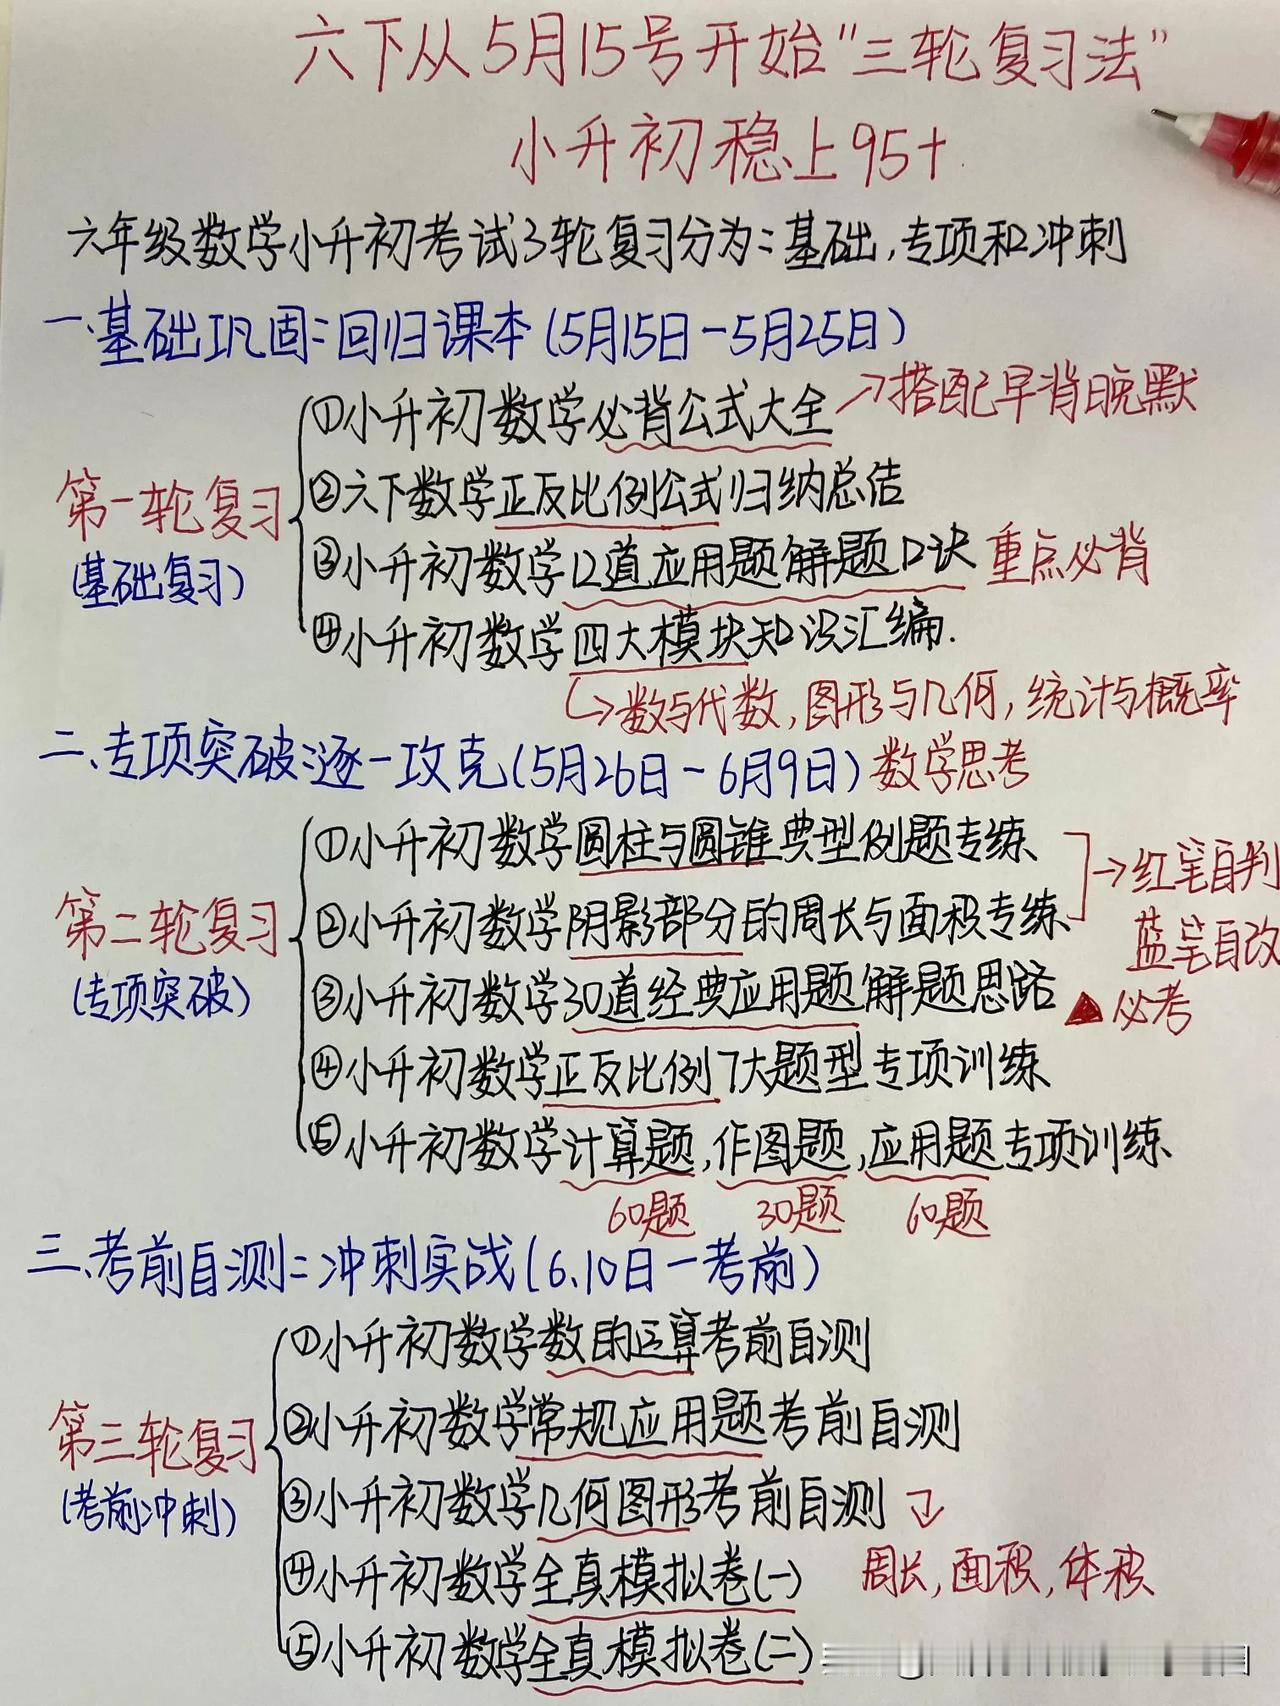 六下从5月15号开始“三轮复习法”
小升初稳上95+
六年级数学小升初考试3轮复习分为:基础,专项和冲刺
一、基础巩固:回归课本(5月15日-5月25日)
①小升初数学必背公式大全 →搭配早背晚默
②六下数学正反比例公式归纳总结
第一轮复习
(基础复习)
③小升初数学12道应用题解题口诀 重点必背
④小升初数学四大模块知识汇编.
↳数与代数,图形与几何,统计与概率
二、专项突破:逐一攻克(5月26日-6月9日) 数学思考
①小升初数学圆柱与圆锥典型例题专练
→红笔自判
第二轮复习
(专项突破)
②小升初数学阴影部分的周长与面积专练
蓝笔自改
③小升初数学30道经典应用题解题思路 ▲必考
④小升初数学正反比例7大题型专项训练
⑤小升初数学计算题,作图题,应用题专项训练
60题 30题 60题
三、考前自测:冲刺实战(6.10日-考前)
①小升初数学数的运算考前自测
第三轮复习
(考前冲刺)
②小升初数学常规应用题考前自测
③小升初数学几何图形考前自测
周长,面积,体积
④小升初数学全真模拟卷(一)
⑤小升初数学全真模拟卷(二)